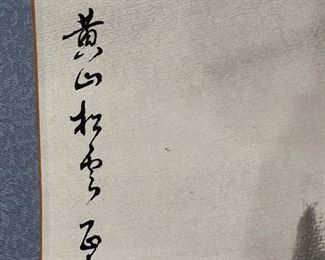 黄山松雲